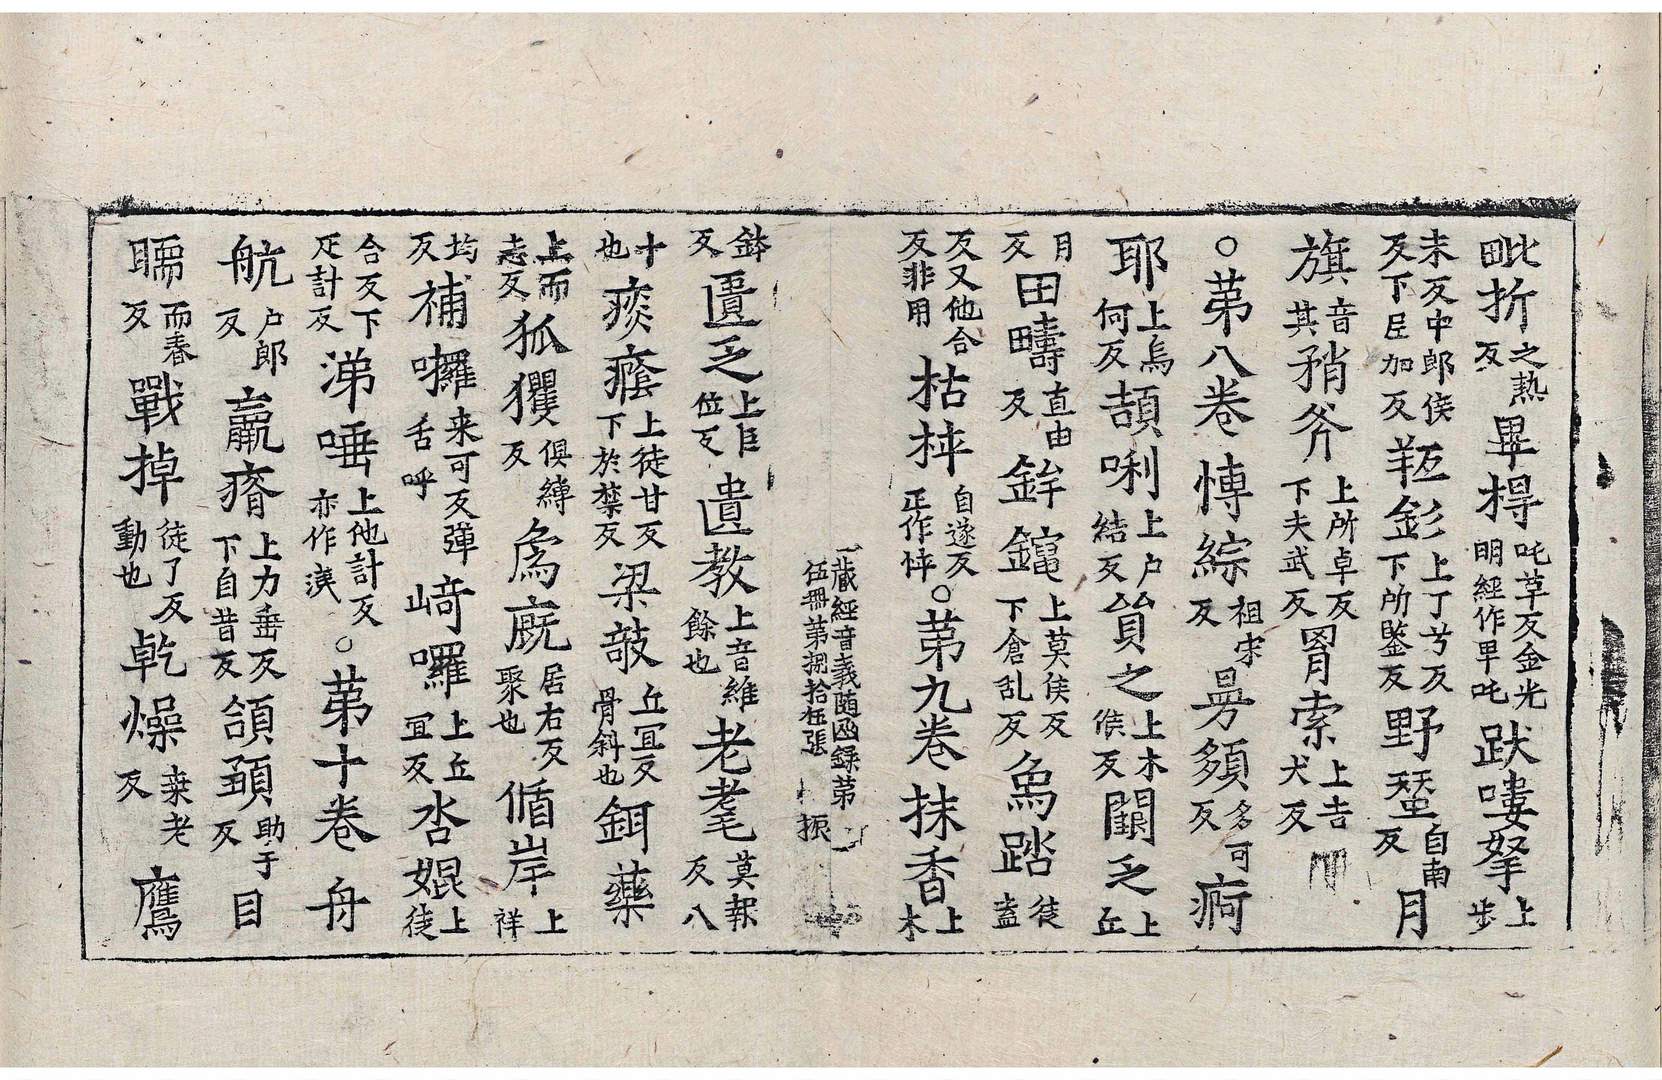 毗折之熱反畢㝵吒草反金光明經作畢吒䟦嘍拏上步
未反中郎侯反下𡰱加反䩕釤上丁兮反下所鑒反野蝅自南反月
旗音其矟斧上所卓反下夫武反罥索上吉犬反
○苐八卷慱綜祖宋反昙䫂多可反痾
耶上烏何反頡唎上户結反貿之上木侯反闃乏上丘
月反田疇直由反鉾鑹上莫侯反下倉乱反為踏徒盍
反又他合反非用枯㭉自遂反正作悴○苐九卷抹香上木
一藏經音義随函録苐伍冊苐捌拾伍張 振
鉢反匱乏上臣位反遺教上音維餘也老耄莫報反八
十也痰癊上徒甘反下於禁反梁攲丘冝反骨斜也鉺藥
上而志反狐玃俱縛反為廐居右反聚也循岸上祥
均反補囉来可反彈舌呼㟢囉上丘冝反呇婫上徒
合反下疋計反涕唾上他計反亦作洟○苐十卷舟
航户郎反羸瘠上力垂反下自昔反頷頚助于反目
𥆧而春反戰掉徒了反動也乾燥桒老反鷹